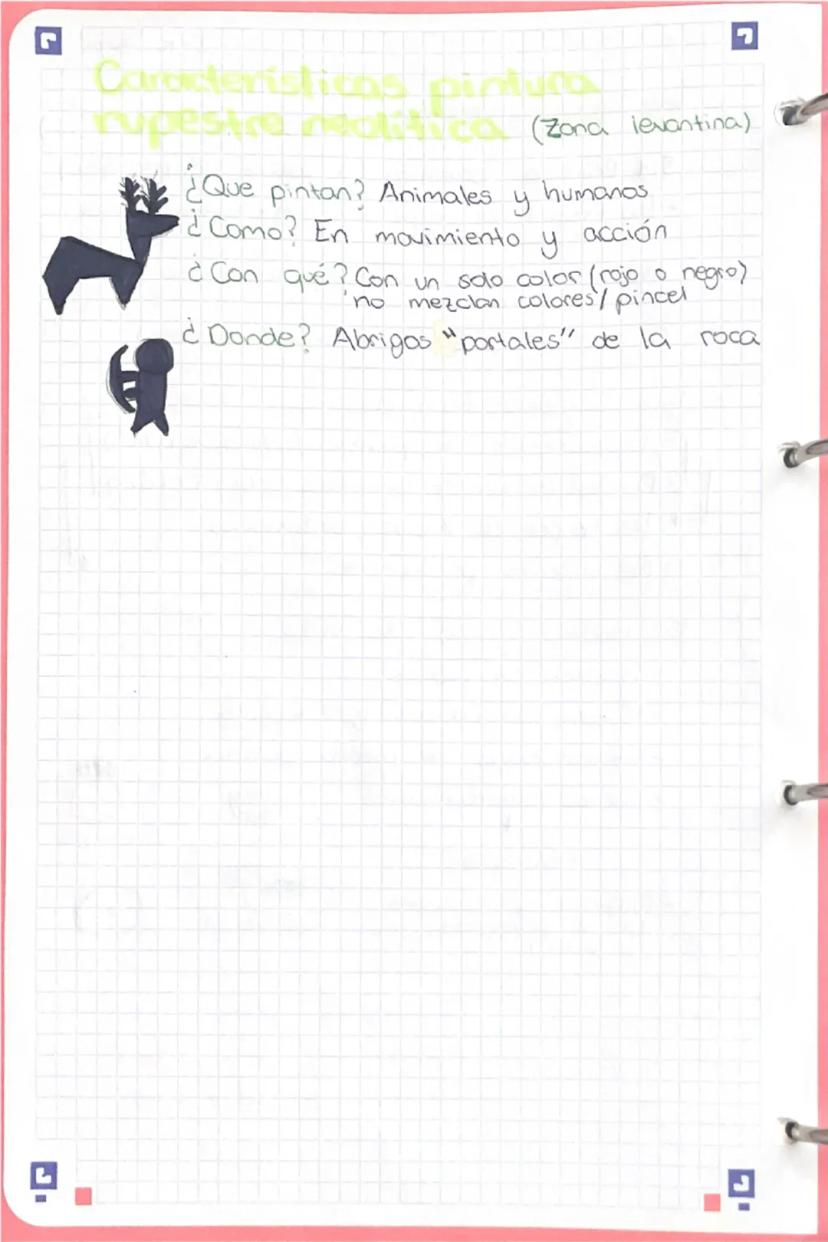 Características pintura
rupestre neolítica (Zona levantina)
¿Que pintan? Animales y humanos
¿Como? En movimiento y acción
¿Con qué? Con un solo color (rojo o negro)
no mezclan colores / pincel
¿Donde? Abrigos "portales" de la roca